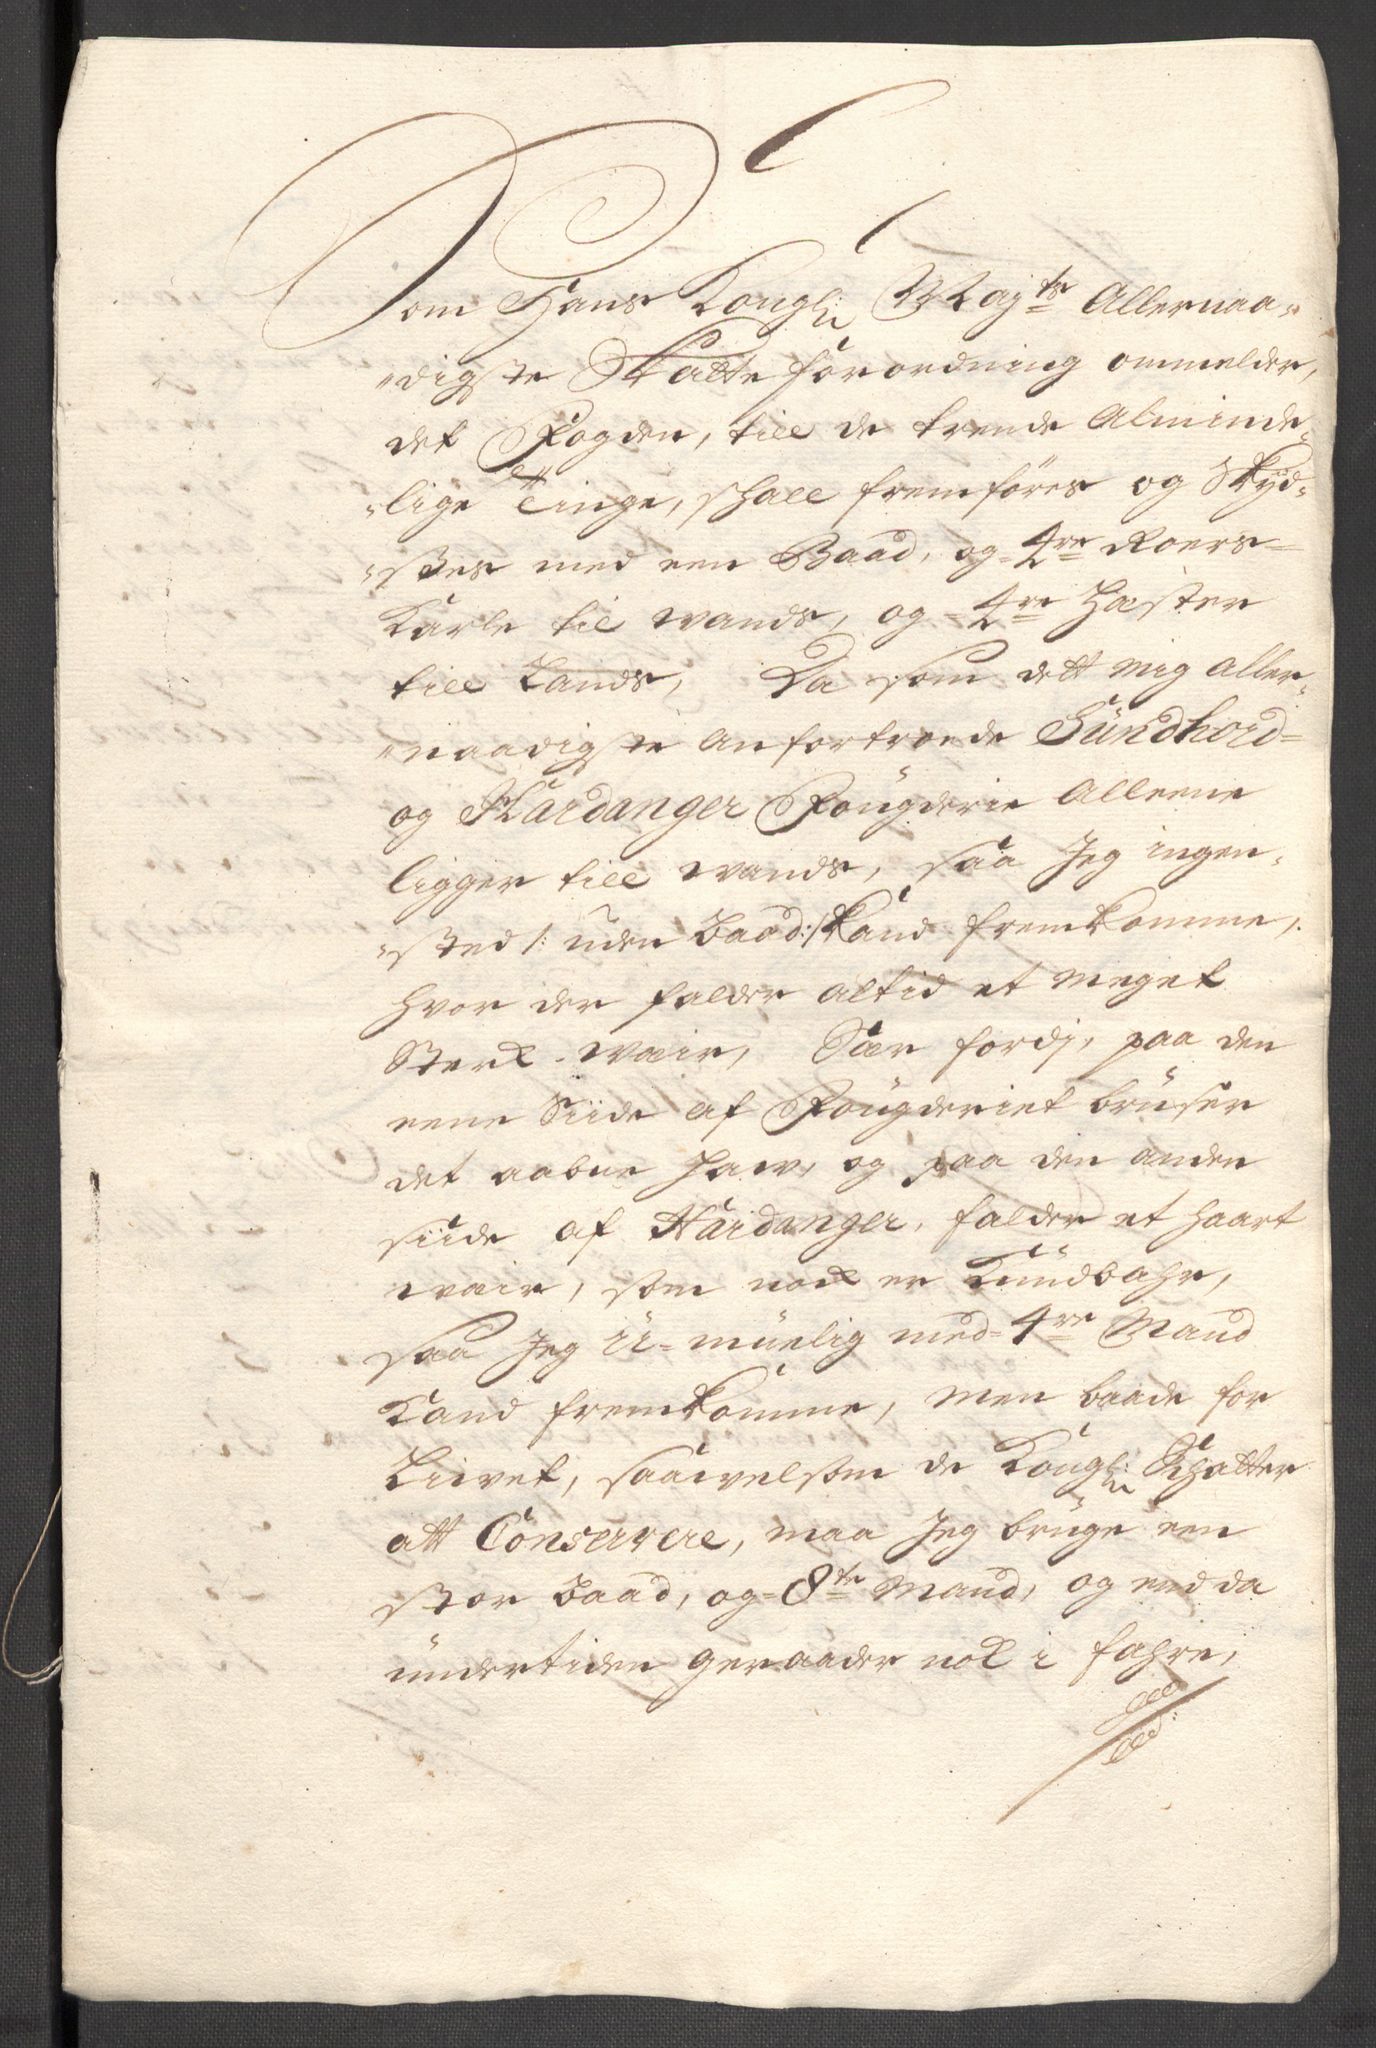 Som Hans Kongl: Majts Allernaa-
digste Skatte forordning ommelder,
det Fogden, till de trende Alminde-
lige Tinge, schall fremføres og Skyd-
stes med een Baad, og 4re Roers-
Karle til wands, og 4re Hæster
till Lands, Da som dett mig aller-
naadigste anfortroede Sundhord-
og Hardanger Fougderie Alleene
ligger till wands, saa Jeg ingen-
sted /: uden Baad :/ kand fremkomme,
hvor der falder altid et meget
Sterk wæir, Sær fordj, paa den
eene Siide af Fougderiet bruser
det aabne Haw, og paa den anden
siide af Hardanger, falder et haart
wæir, som nok er Kundbahr,
saa Jeg U-muelig med 4re Mand
Kand fremkomme, men baade for
Liivet, saawelsom de Kongl: Schatter
att Conservere, maa Jeg bruge een
stor Baad, og 8te Mand, og endda
undertiden geraader nok i fahre,